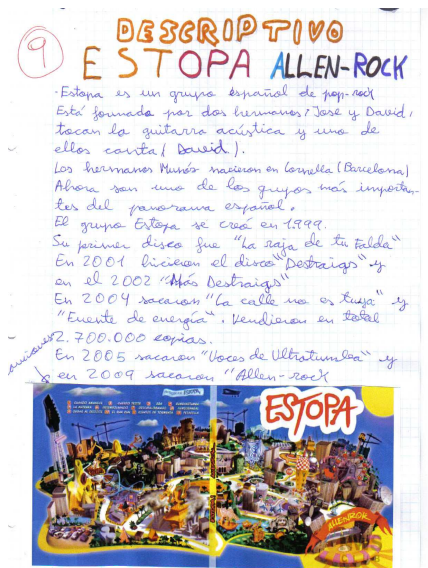 9
DESCRIPTIVO
ESTOPA ALLEN-ROCK
·Estopa es un grupo español de pop-rock
Está formado por dos hermanos, Jose y David,
tocan la guitarra acústica y uno de
ellos canta (David).
Los hermanos Muñós nacieron en Cornella (Barcelona)
Ahora son uno de los grupos más importan-
tes del panorama español.
El grupo Estopa se creó en 1.999.
Su primer disco fue "La raja de tu falda"
En 2001 hicieron el disco "Destraigs" y
en el 2002 "Más Destraigs"
En 2004 sacaron "La calle no es tuya" y
"Fuente de energía". Vendieron en total
2.700.000 copias.
En 2005 sacaron "Voces de Ultratumba" y
en 2009 sacaron "Allen-rock
canciones
ESTOPA
ALLENROK